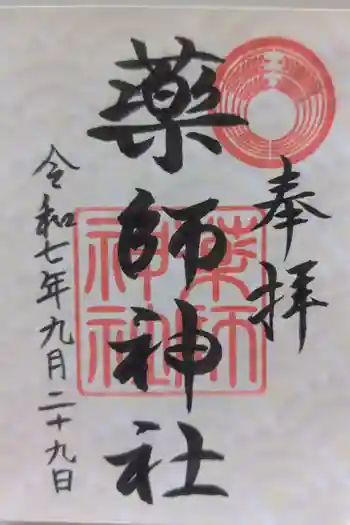 奉拝
薬師神社
薬師
神社
令和七年九月二十九日